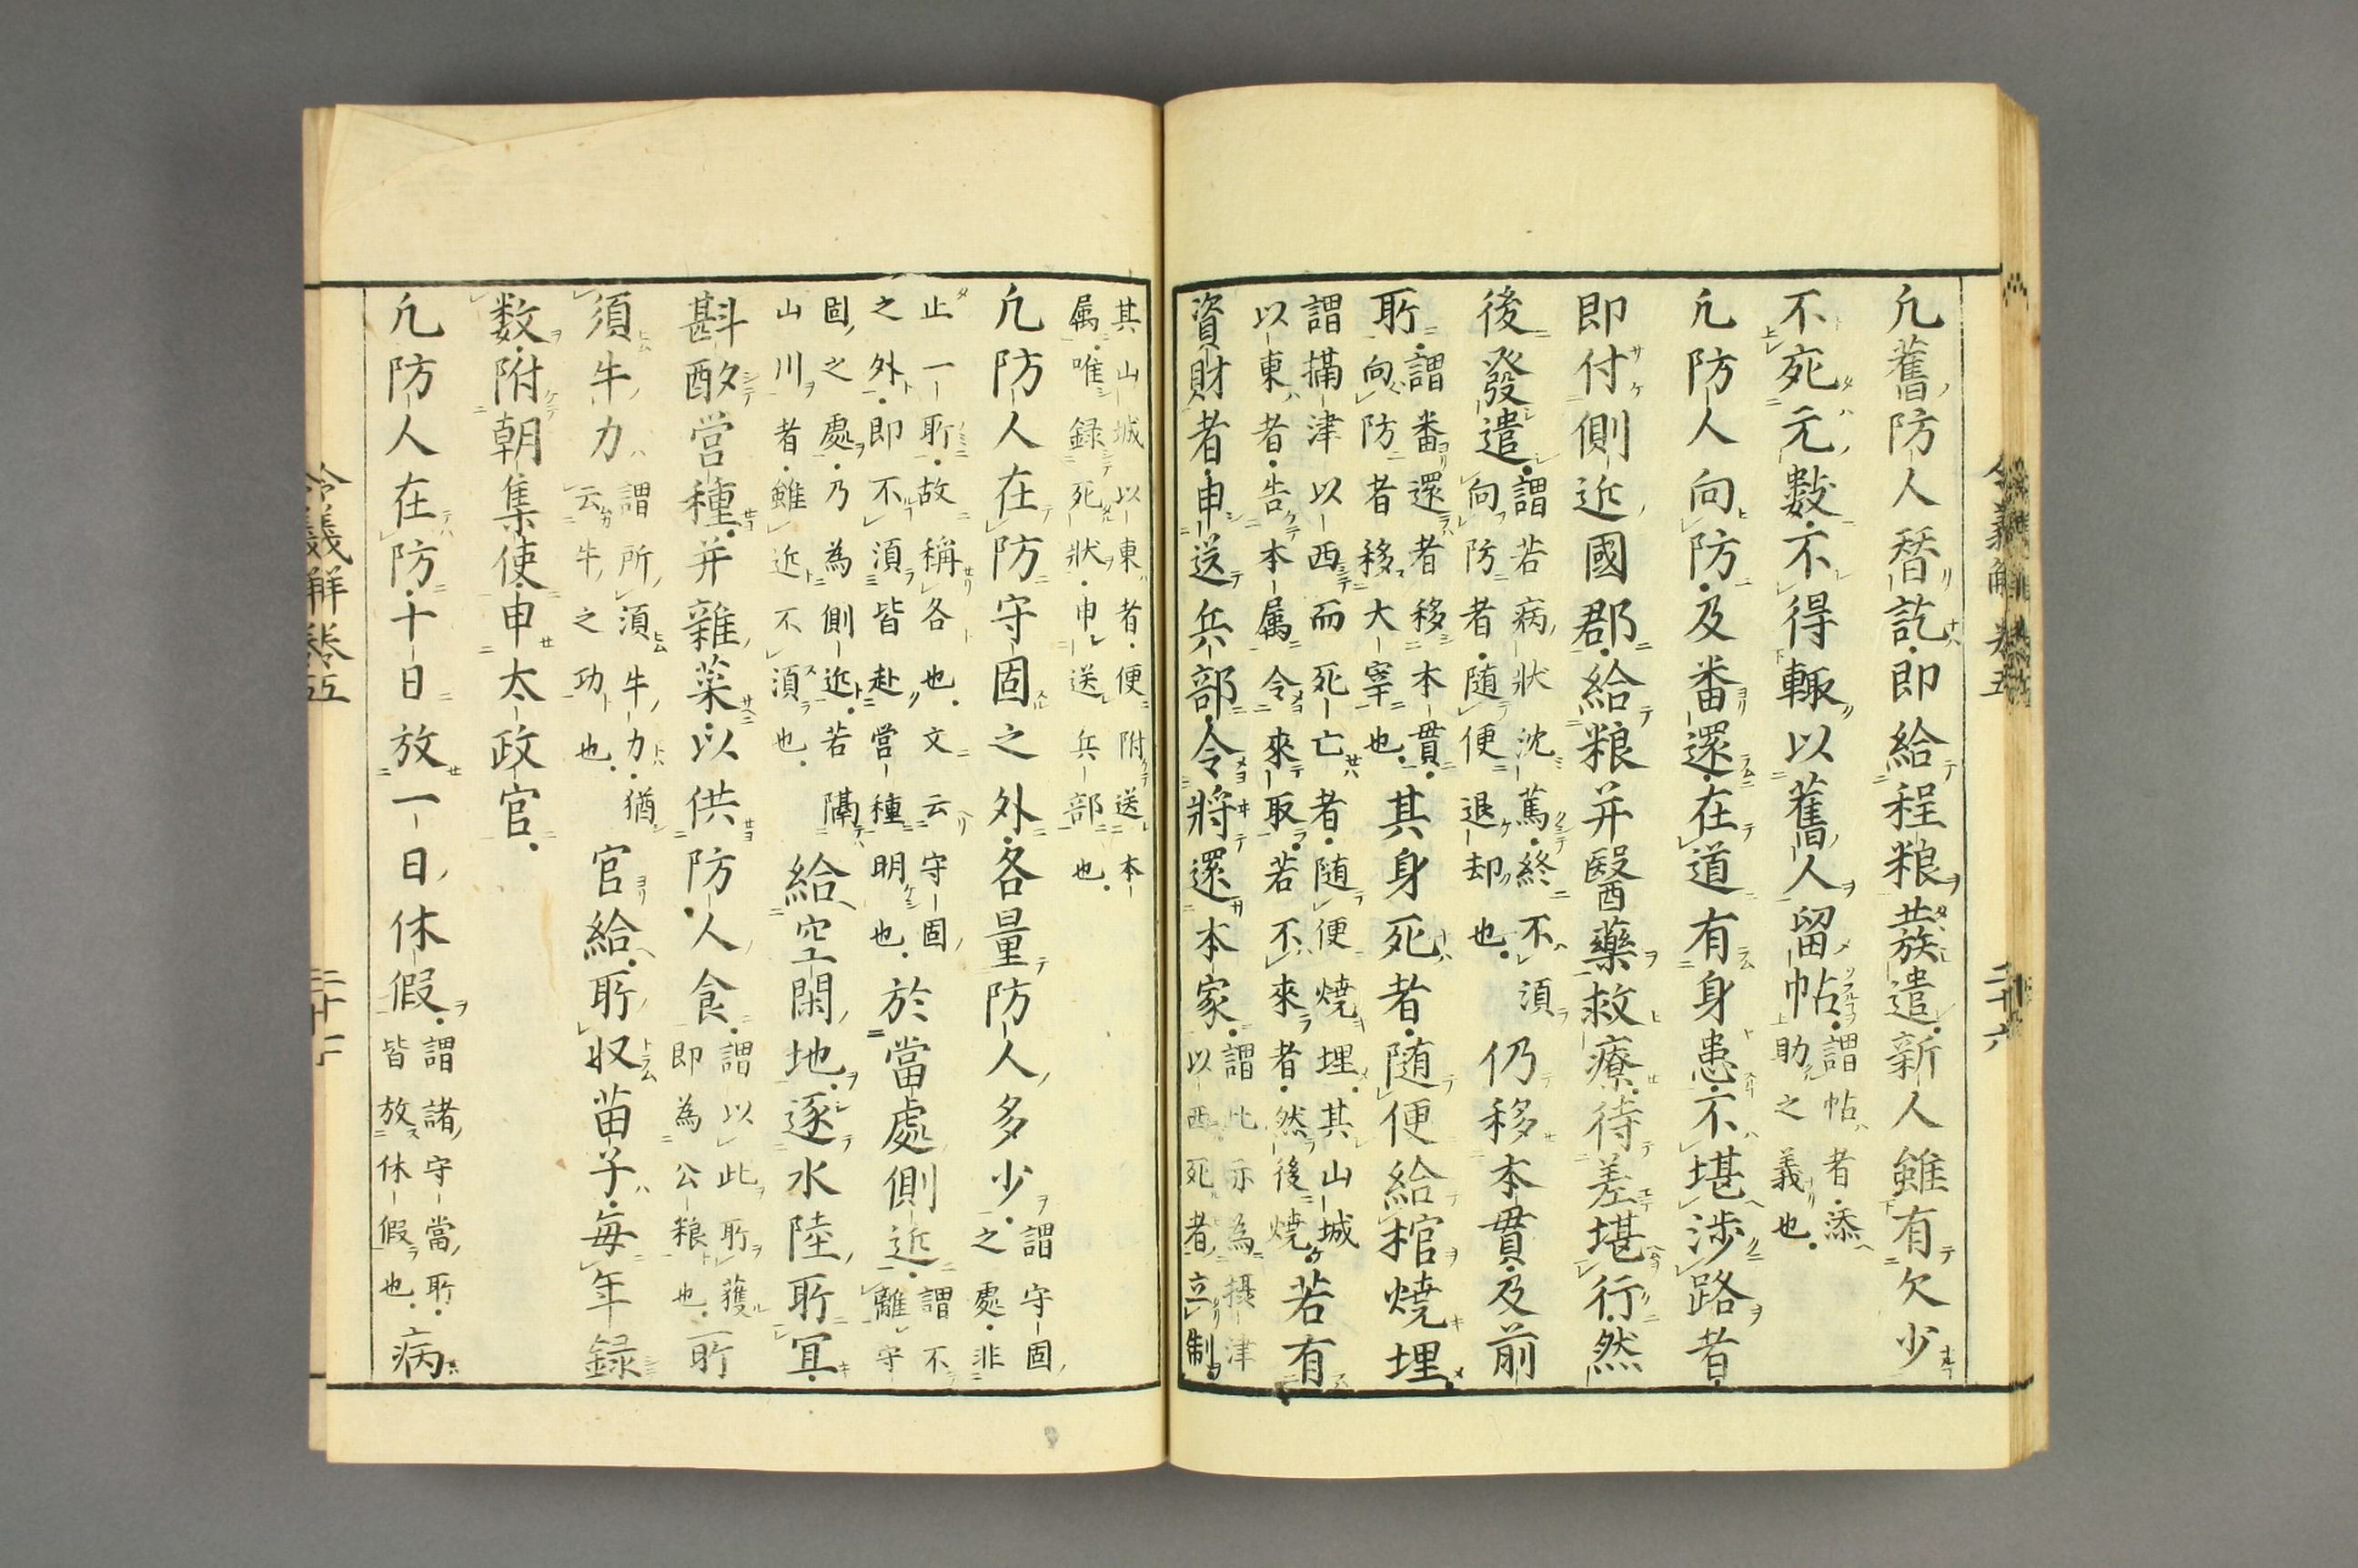 凡舊防人替訖即給程粮共族遣新人雖有欠少
不死元數不得輙以舊人留帖謂帖者添助之義也
凡防人向防及番還在道有身患不堪渉路者
即付側近國郡給粮并醫藥救療待差堪行然
後發遣謂若病状沈篤終不須向防者随便退却也仍移本貫及前
所謂番還者移本貫向防者移大宰也其身死者随便給棺焼埋
謂攝津以西而死亡者随便焼埋其山城以東者告本属令來取若不來者然後焼若有
資財者申送兵部令將還本家謂此亦為摂津以西死者立制
其山城以東者便附送本属唯録死状申送兵部也
凡防人在防守固之外各量防人多少謂守固之處非
止一所故稱各也文云守固之外即不須皆赴営種明也於當處側近謂不離守
固之處乃為側近若隔山川者雖近不須也給空閑地逐水陸所宜
斟酌営種并雜菜以供防人食謂以此所獲即為公粮也所
須牛力謂所須牛力猶云牛之功也官給所収苗子毎年録
数附朝集使申太政官
凡防人在防十日放一日休假謂諸守當所皆放休假也病
令義解巻五
二十六
令義解巻五